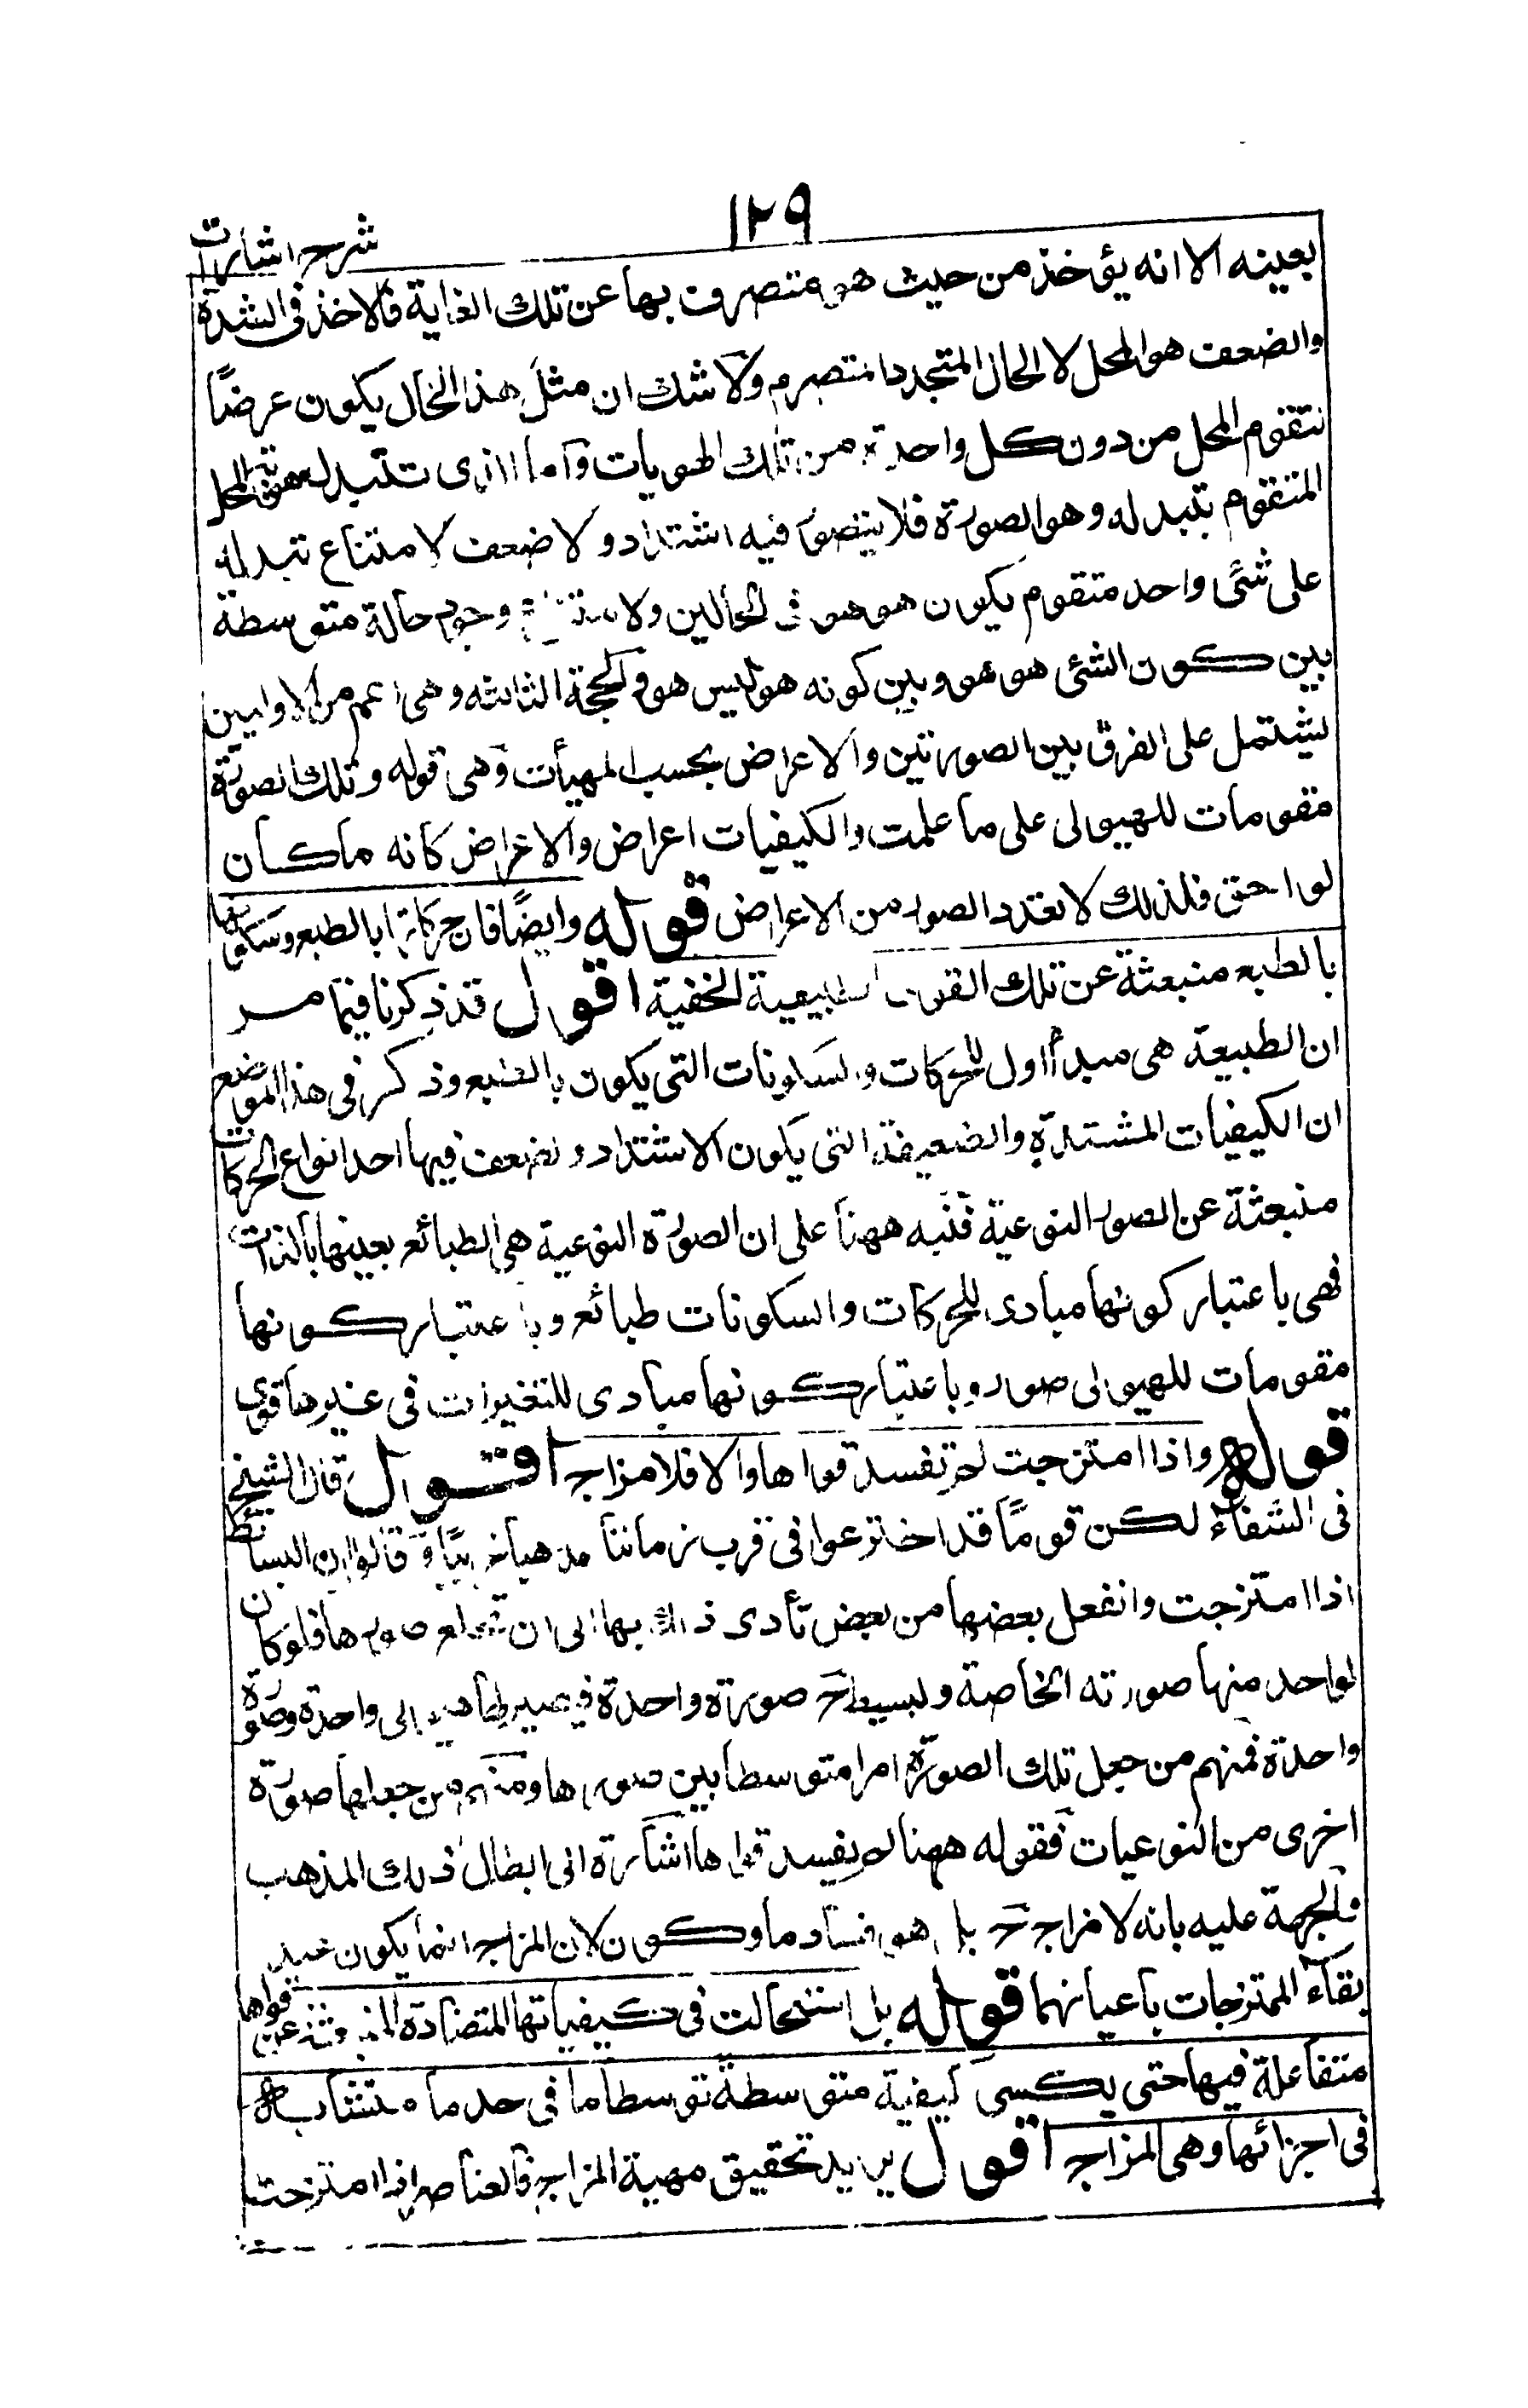 ١٢٩
شرح اشارات
بعينه الا انه يؤخذ من حيث هو متصرف بها عن تلك الغاية فالاخذ فى الشدة
والضعف هو المحل لا الحال المتجدد المتصرم ولا شك ان مثل هذا الحال يكون عرضًا
لتقوم المحل من دون كل واحدة من تلك الهويات واما الذى تتبدل هوية المحل
المتقوم بتبدله وهو الصورة فلا يتصور فيه اشتداد ولا ضعف لامتناع تبدله
على شئ واحد متقوم يكون هو هو فى الحالين ولامتناع وجود حالة متوسطة
بين كون الشئ هو هو وبين كونه هو ليس هو والحجة الثالثه وهى اعم من الاوليين
ليشتمل على الفرق بين الصورتين والاعراض بحسب المهيأت وهى قوله وتلك الصورة
مقومات للهيولى على ما علمت والكيفيات اعراض والاعراض كانه ماكان
لواحق فلذلك لا تعدد الصور من الاعراض قوله وايضًا فان حركاتها بالطبع وسكوناتها
بالطبع منبعثة عن تلك القوى الطبيعية الخفية اقول قد ذكرنا فيما مر
ان الطبيعة هى مبدأ اول للحركات والسكونات التى يكون بالطبع وذكر فى هذا الموضع
ان الكيفيات المشتدة والضعيفة التى يكون الاشتداد والضعف فيها احد انواع الحركات
منبعثة عن الصور النوعية فنبه ههنا على ان الصورة النوعية هى الطبائع بعينها بالذات
فهى باعتبار كونها مبادى للحركات والسكونات طبائع وباعتبار كونها
مقومات للهيولى صور وباعتبار كونها مبادى للتغيرات فى غيرها قوى
قوله واذا امتزجت لم تفسد قواها والا فلا مزاج اقول قال الشيخ
فى الشفاء لكن قومًا قد اخترعوا فى قرب زماننا مذهبا غريبًا وقالوا ان البسائط
اذا امتزجت وانفعل بعضها من بعض تأدى ذلك بها الى ان تخلع صورها فلا يكون
لواحد منها صورته الخاصة ولبست ح صورة واحدة فيصير لها هيولى واحدة وصورة
واحدة فمنهم من جعل تلك الصورة امرا متوسطا بين صورها ومنهم من جعلها صورة
اخرى من النوعيات فقوله ههنا لم يفسد قواها اشارة الى ابطال ذلك المذهب
والحجة عليه بانه لا مزاج ح بل هو فساد ما وكون لان المزاج انما يكون عند
بقاء الممتزجات باعيانها قوله بل استحالت فى كيفياتها المتضادة المنبعثة عن قواها
متفاعلة فيها حتى يكسى كيفية متوسطة توسطا ما فى حد ما متشابه
فى اجزائها وهى المزاج اقول يريد تحقيق مهية المزاج فالعناصر اذا امتزجت